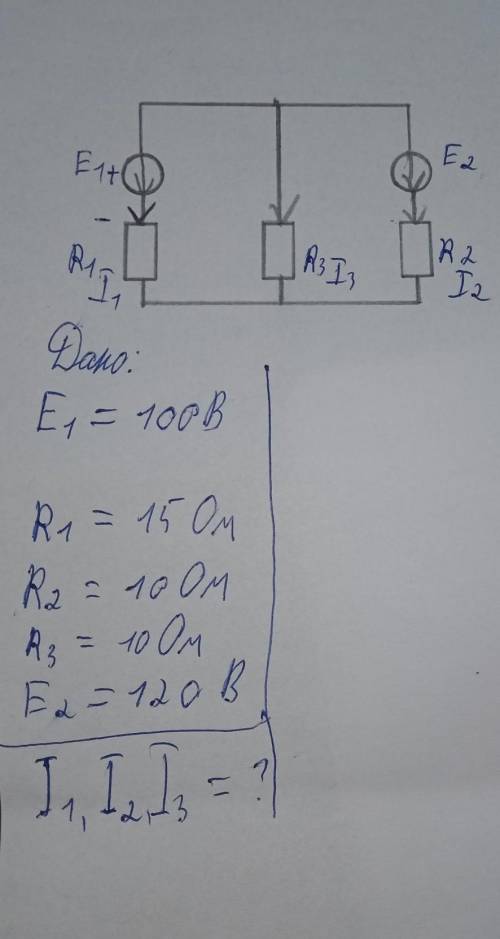 E1+
E2
-
R1
I1
R3 I3
R2
I2
Дано:
E1 = 100В
R1 = 15 Ом
R2 = 10 Ом
R3 = 10 Ом
E2 = 120 В
I1, I2, I3 = ?